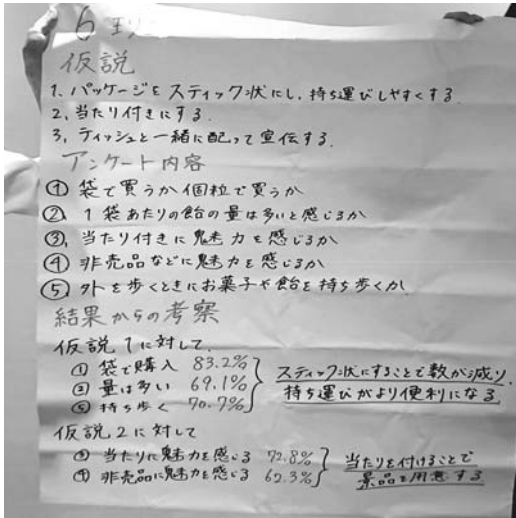 6 班
仮説
1. パッケージをスティック状にし、持ち運びしやすくする.
2, 当たり付きにする.
3, ティッシュと一緒に配って宣伝する.
アンケート内容
① 袋で買うか個粒で買うか
②, 1袋あたりの飴の量は多いと感じるか
③, 当たり付きに魅力を感じるか
④ 非売品などに魅力を感じるか
⑤ 外を歩くときにお菓子や飴を持ち歩くか.
結果からの考察
仮説1に対して.
① 袋で購入 83.2%
② 量は多い 69.1%
⑤ 持ち歩く 70.7%
スティック状にすることで数が減り.
持ち運びがより便利になる.
仮説2に対して
③ 当たりに魅力を感じる 72.8%
④ 非売品に魅力を感じる 62.3%
当たりを付けることで
景品を用意する